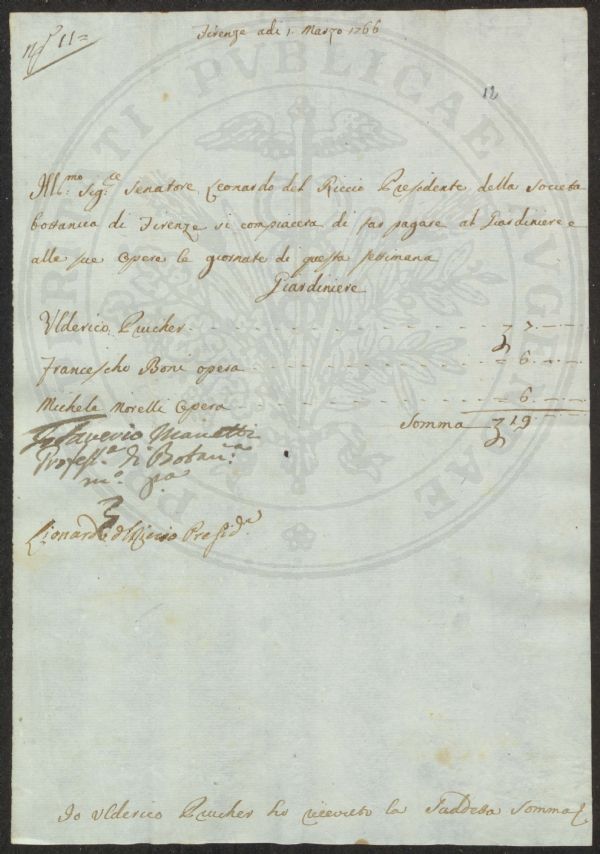 N° 11=
Firenze adi 1. Marzo 1766
12
Ill.mo Sig.re Senatore Leonardo del Riccio Presidente della Societa
bottanica di Firenze si compiacera di far pagare al Giardiniere e
alle sue opere le giornate di questa settimana
Giardiniere
Ulderico Prucher 7
Francescho Boni opera = 6
Michele Morelli opera = 6
Somma 19
Saverio Manetti
Profess.e di Botan.a
m.o p.a
Lionardo del Riccio Presid.e
Io Ulderico Prucher ho ricevuto la suddetta somma
PUBLICAE